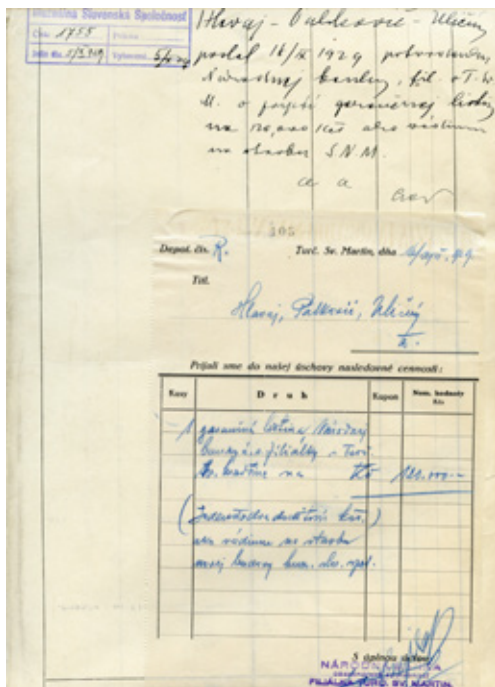 Muzeálna Slovenská Spoločnosť
Číslo 1755 Príloha
Došlo dňa Vybavené
Hlavaj - Palkovič - Uličný
podal 16/IX 1929 potvrdenku
Národnej banky, fil. v T. Sv.
M. o prijatí garančnej listiny
na 120,000 Kčs ako vádium
na stavbu S. N. M.
a a
Depos. čís. R. Turč. Sv. Martin, dňa
Titl.
Hlavaj, Palkovič, Uličný
Prijali sme do našej úschovy nasledovné cennosti:
Kusy Druh Kupon Nom. hodnoty Kčs
1 garančná listina Národnej
banky filiálky v Turč.
Sv. Martine na Kč 120.000.—
(Jedenstodvadsaťtisíc Kčs.)
ako vádium na stavbu
novej budovy muz. slov. spol.
S úplnou úctou
NÁRODNÁ BANKA
FILIÁLKA TURČ. SV. MARTIN.